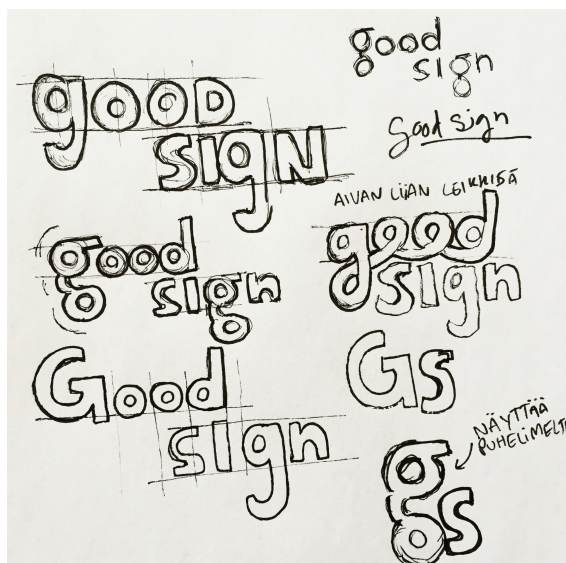 good
sign
good
sign
Good sign
AIVAN LIIAN LEIKKISÄ
good
sign
good
sign
Good
sign
Gs
NÄYTTÄÄ
gs